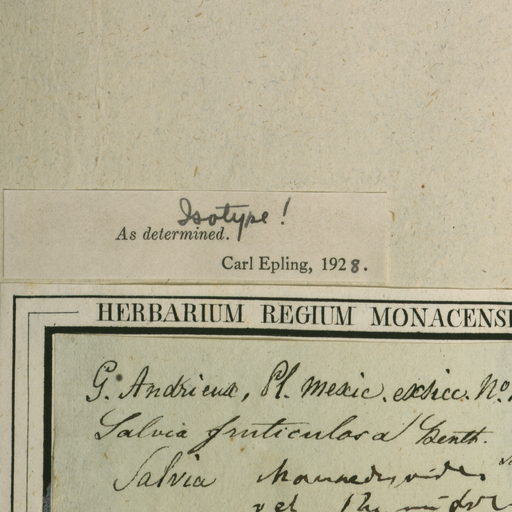 Isotype!
As determined.
Carl Epling, 1928.
HERBARIUM REGIUM MONACENS
G. Andrieux, Pl. Mexic. exsicc. No.
Salvia fruticulosa Benth.
Salvia
vel